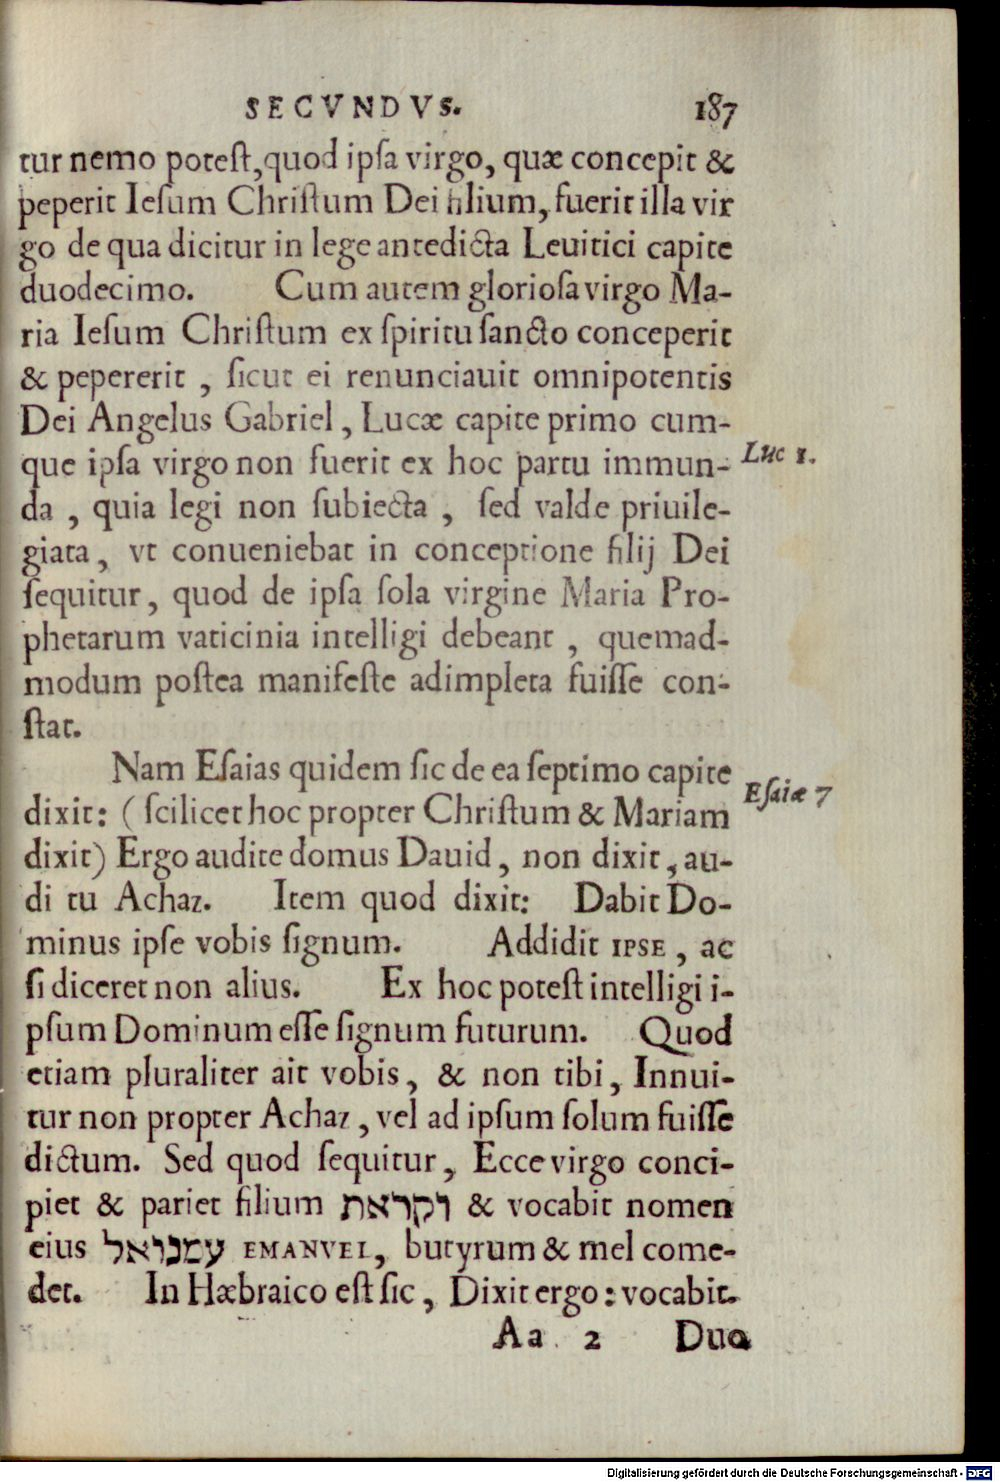 SECVNDVS. 187
tur nemo poteſt, quod ipſa virgo, quæ concepit &
peperit Ieſum Chriſtum Dei filium, fuerit illa vir
go de qua dicitur in lege antedicta Leuitici capite
duodecimo. Cum autem glorioſa virgo Ma-
ria Ieſum Chriſtum ex ſpiritu ſancto conceperit
& pepererit, ſicut ei renunciauit omnipotentis
Dei Angelus Gabriel, Lucæ capite primo cum-
que ipſa virgo non fuerit ex hoc partu immun-
Luc 1.
da, quia legi non ſubiecta, ſed valde priuile-
giata, vt conueniebat in conceptione filij Dei
ſequitur, quod de ipſa ſola virgine Maria Pro-
phetarum vaticinia intelligi debeant, quemad-
modum poſtea manifeſte adimpleta fuiſſe con-
ſtat.
Nam Eſaias quidem ſic de ea ſeptimo capite
Eſaiæ 7
dixit: (ſcilicet hoc propter Chriſtum & Mariam
dixit) Ergo audite domus Dauid, non dixit, au-
di tu Achaz. Item quod dixit: Dabit Do-
minus ipſe vobis ſignum. Addidit IPSE, ac
ſi diceret non alius. Ex hoc poteſt intelligi i-
pſum Dominum eſſe ſignum futurum. Quod
etiam pluraliter ait vobis, & non tibi, Innui-
tur non propter Achaz, vel ad ipſum ſolum fuiſſe
dictum. Sed quod ſequitur, Ecce virgo conci-
piet & pariet filium וקראת & vocabit nomen
eius עמנואל EMANVEL, butyrum & mel come-
det. In Hæbraico eſt ſic, Dixit ergo: vocabit.
Aa 2 Duo
Digitalisierung gefördert durch die Deutsche Forschungsgemeinschaft - DFG